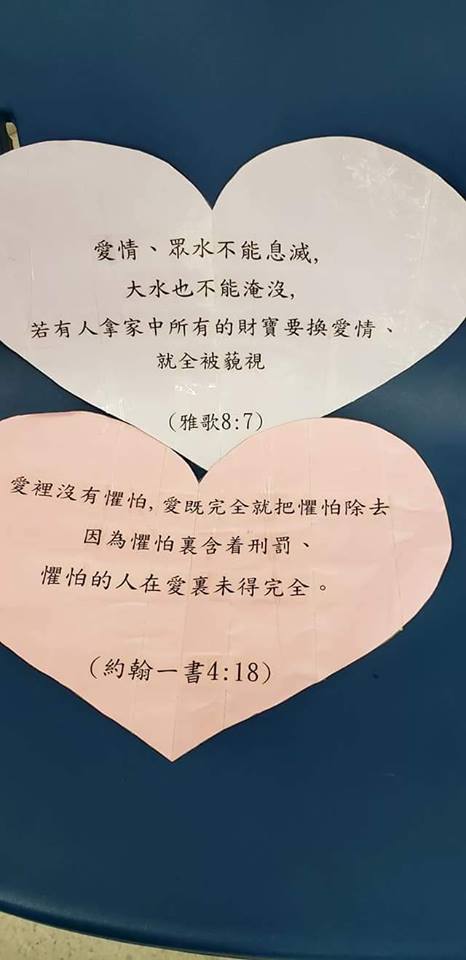 愛情、眾水不能息滅,
大水也不能淹沒,
若有人拿家中所有的財寶要換愛情、
就全被藐視
(雅歌8:7)
愛裡沒有懼怕,愛既完全就把懼怕除去
因為懼怕裏含着刑罰、
懼怕的人在愛裏未得完全。
(約翰一書4:18)